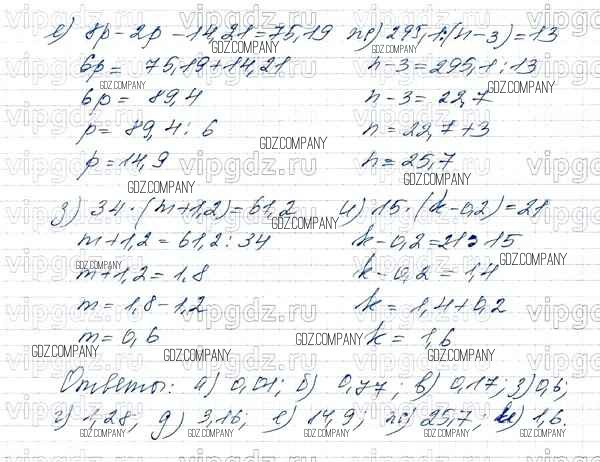 е) 8p - 2p - 14,21 = 75,19
6p = 75,19 + 14,21
6p = 89,4
p = 89,4 : 6
p = 14,9
ж) 295,1 : (n - 3) = 13
n - 3 = 295,1 : 13
n - 3 = 22,7
n = 22,7 + 3
n = 25,7
з) 34 · (m + 1,2) = 61,2
m + 1,2 = 61,2 : 34
m + 1,2 = 1,8
m = 1,8 - 1,2
m = 0,6
и) 15 · (k - 0,2) = 21
k - 0,2 = 21 : 15
k - 0,2 = 1,4
k = 1,4 + 0,2
k = 1,6
Ответы: а) 0,01; б) 0,77; в) 0,17; з) 0,6;
г) 1,28; д) 3,16; е) 14,9; ж) 25,7; и) 1,6.
vipgdz.ru
GDZ.COMPANY